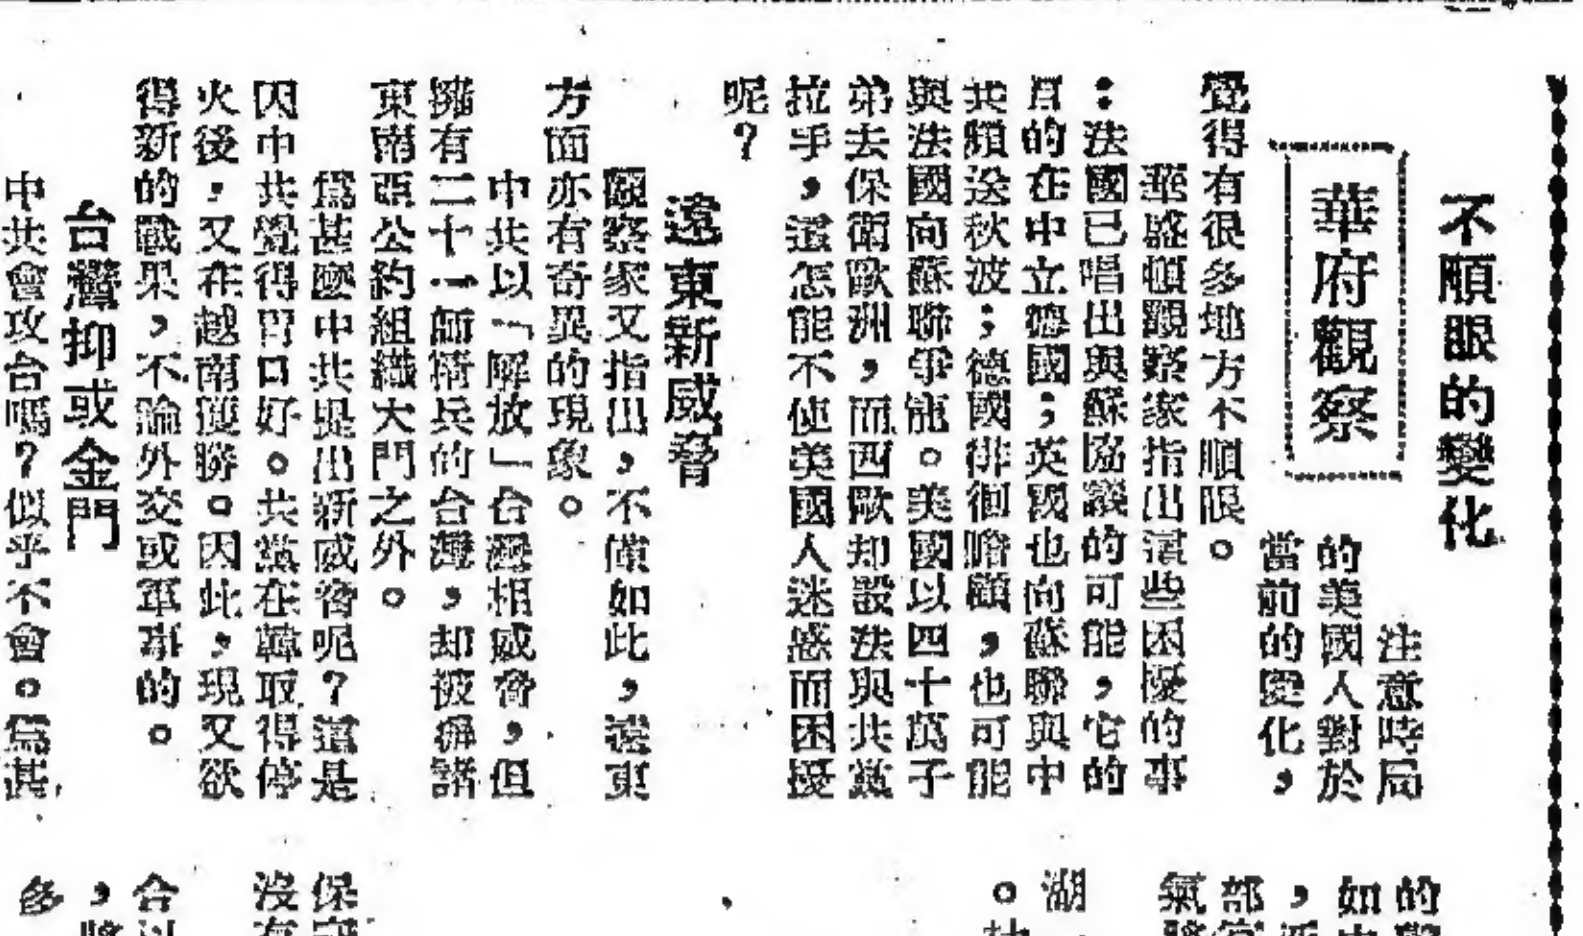 不順眼的變化
華府觀察
注意時局
的美國人對於
當前的變化,
覺得有很多地方不順眼。
華盛頓觀察家指出這些困擾的事
:法國已唱出與蘇協議的可能,它的
目的在中立德國;英國也向蘇聯與中
共頻送秋波;德國徘徊瞻顧,也可能
與法國向蘇聯爭寵。美國以四十萬子
弟去保衛歐洲,而西歐却設法與共黨
拉手,這怎能不使美國人迷惑而困擾
呢?
遠東新威脅
觀察家又指出,不僅如此,遠東
方面亦有奇異的現象。
中共以「解放」台灣相威脅,但
擁有二十一師精兵的台灣,却被摒諸
東南亞公約組織大門之外。
為甚麼中共提出新威脅呢?這是
因中共覺得胃口好。共黨在韓取得停
火後,又在越南獲勝。因此,現又欲
得新的戰果,不論外交或軍事的。
台灣抑或金門
中共會攻台嗎?似乎不會。為甚
的
如
,
部
氣
湖
。
保
沒有
合以
,
多